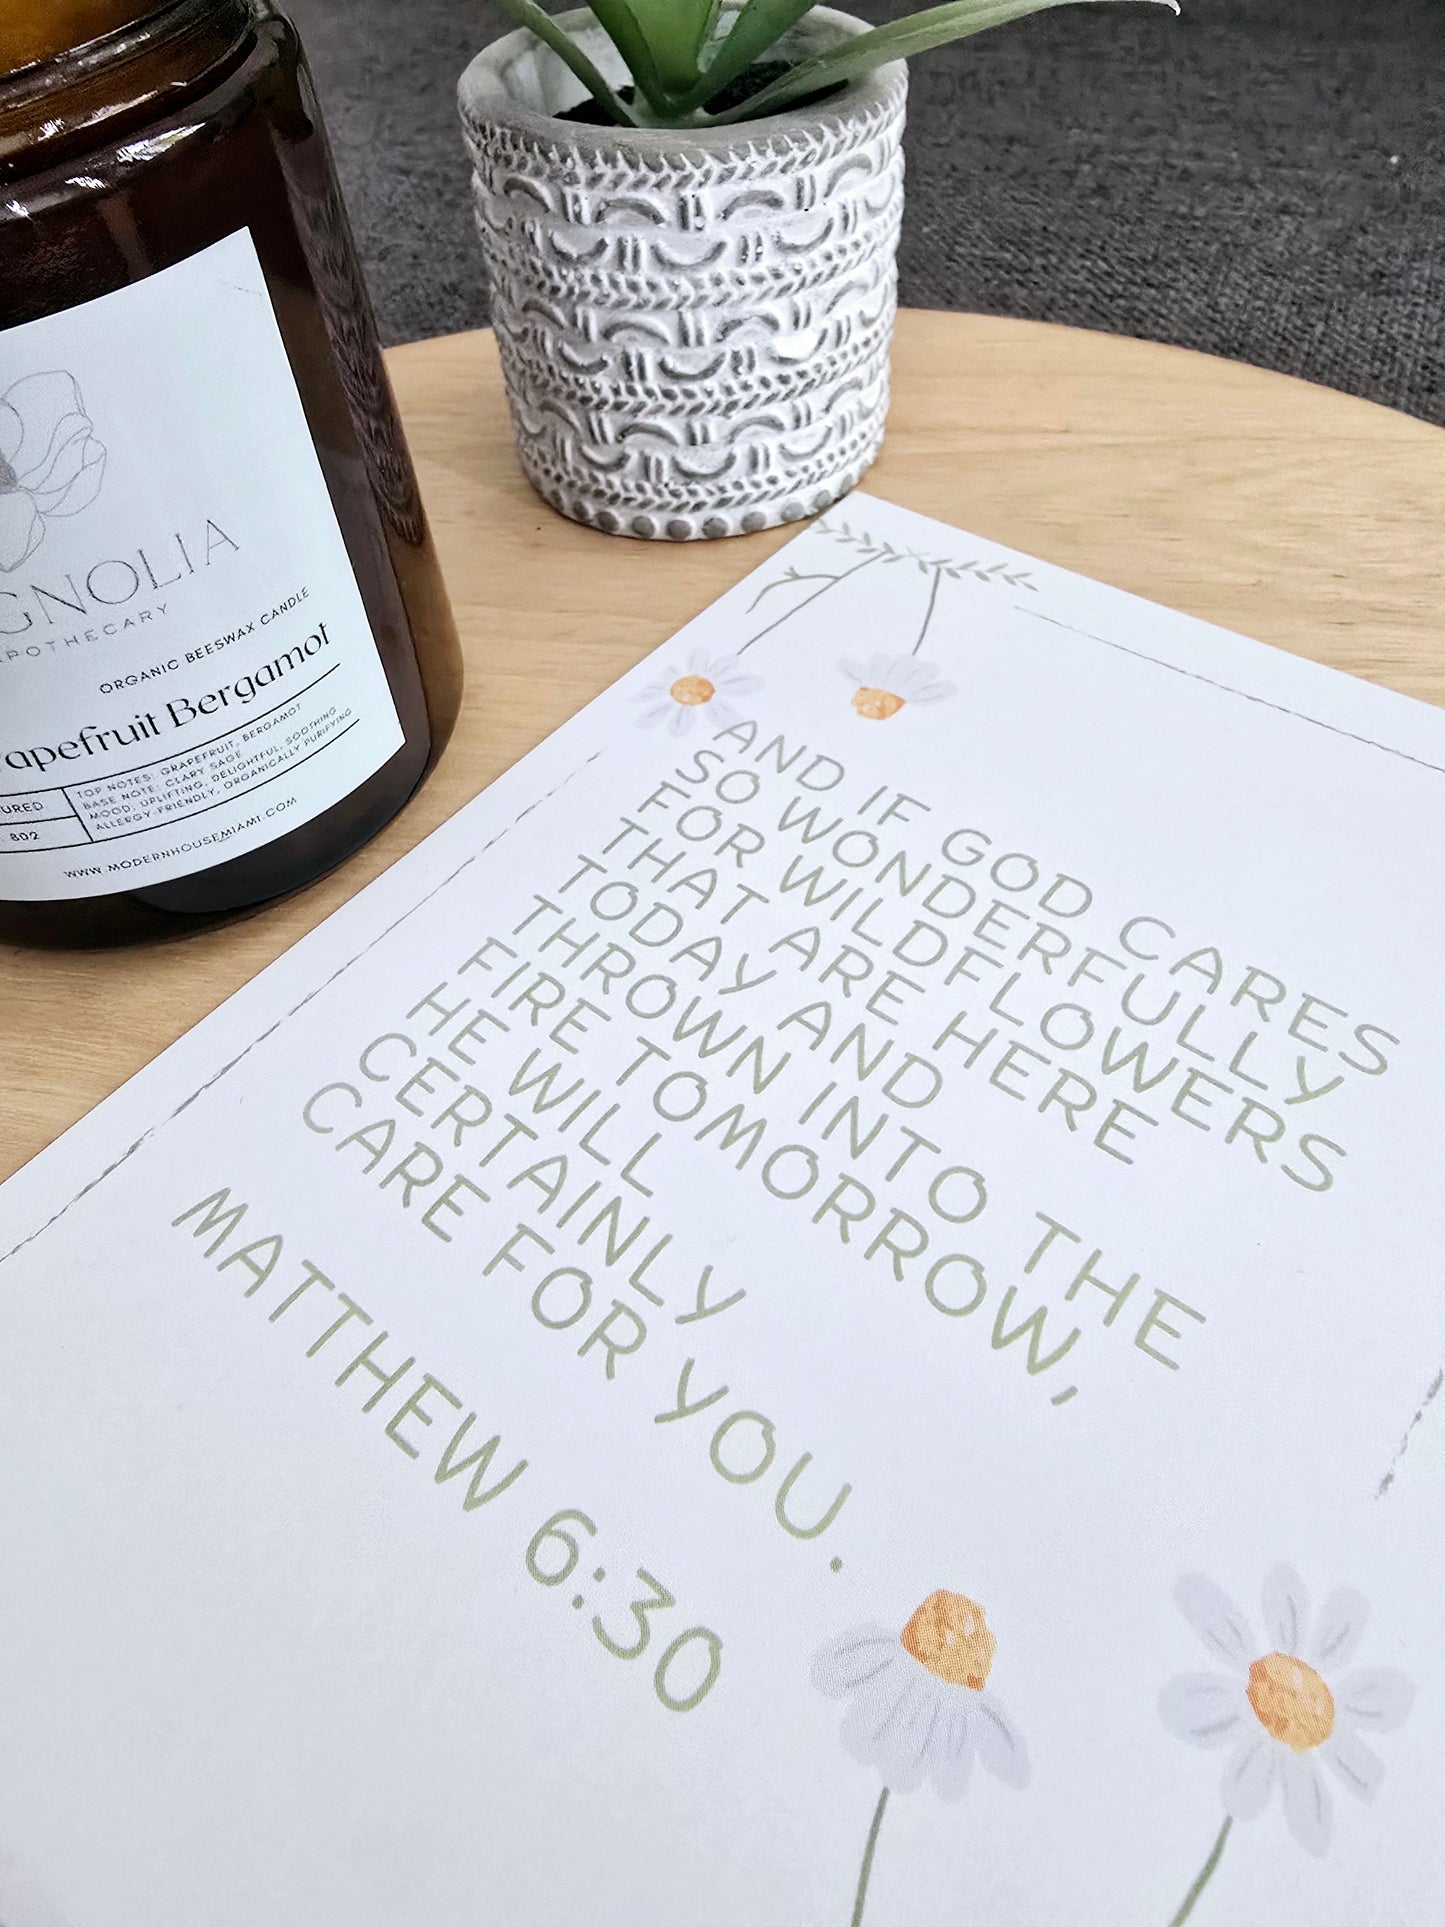 GNOLIA
APOTHECARY
ORGANIC BEESWAX CANDLE
rapefruit Bergamot
URED
8OZ
TOP NOTES: GRAPEFRUIT, BERGAMOT
BASE NOTE: CLARY SAGE
MOOD: UPLIFTING, DELIGHTFUL, SOOTHING
ALLERGY-FRIENDLY, ORGANICALLY PURIFYING
WWW.MODERNHOUSEMIAMI.COM
AND IF GOD CARES
SO WONDERFULLY
FOR WILDFLOWERS
THAT ARE HERE
TODAY AND
THROWN INTO THE
FIRE TOMORROW,
HE WILL
CERTAINLY
CARE FOR YOU.
MATTHEW 6:30